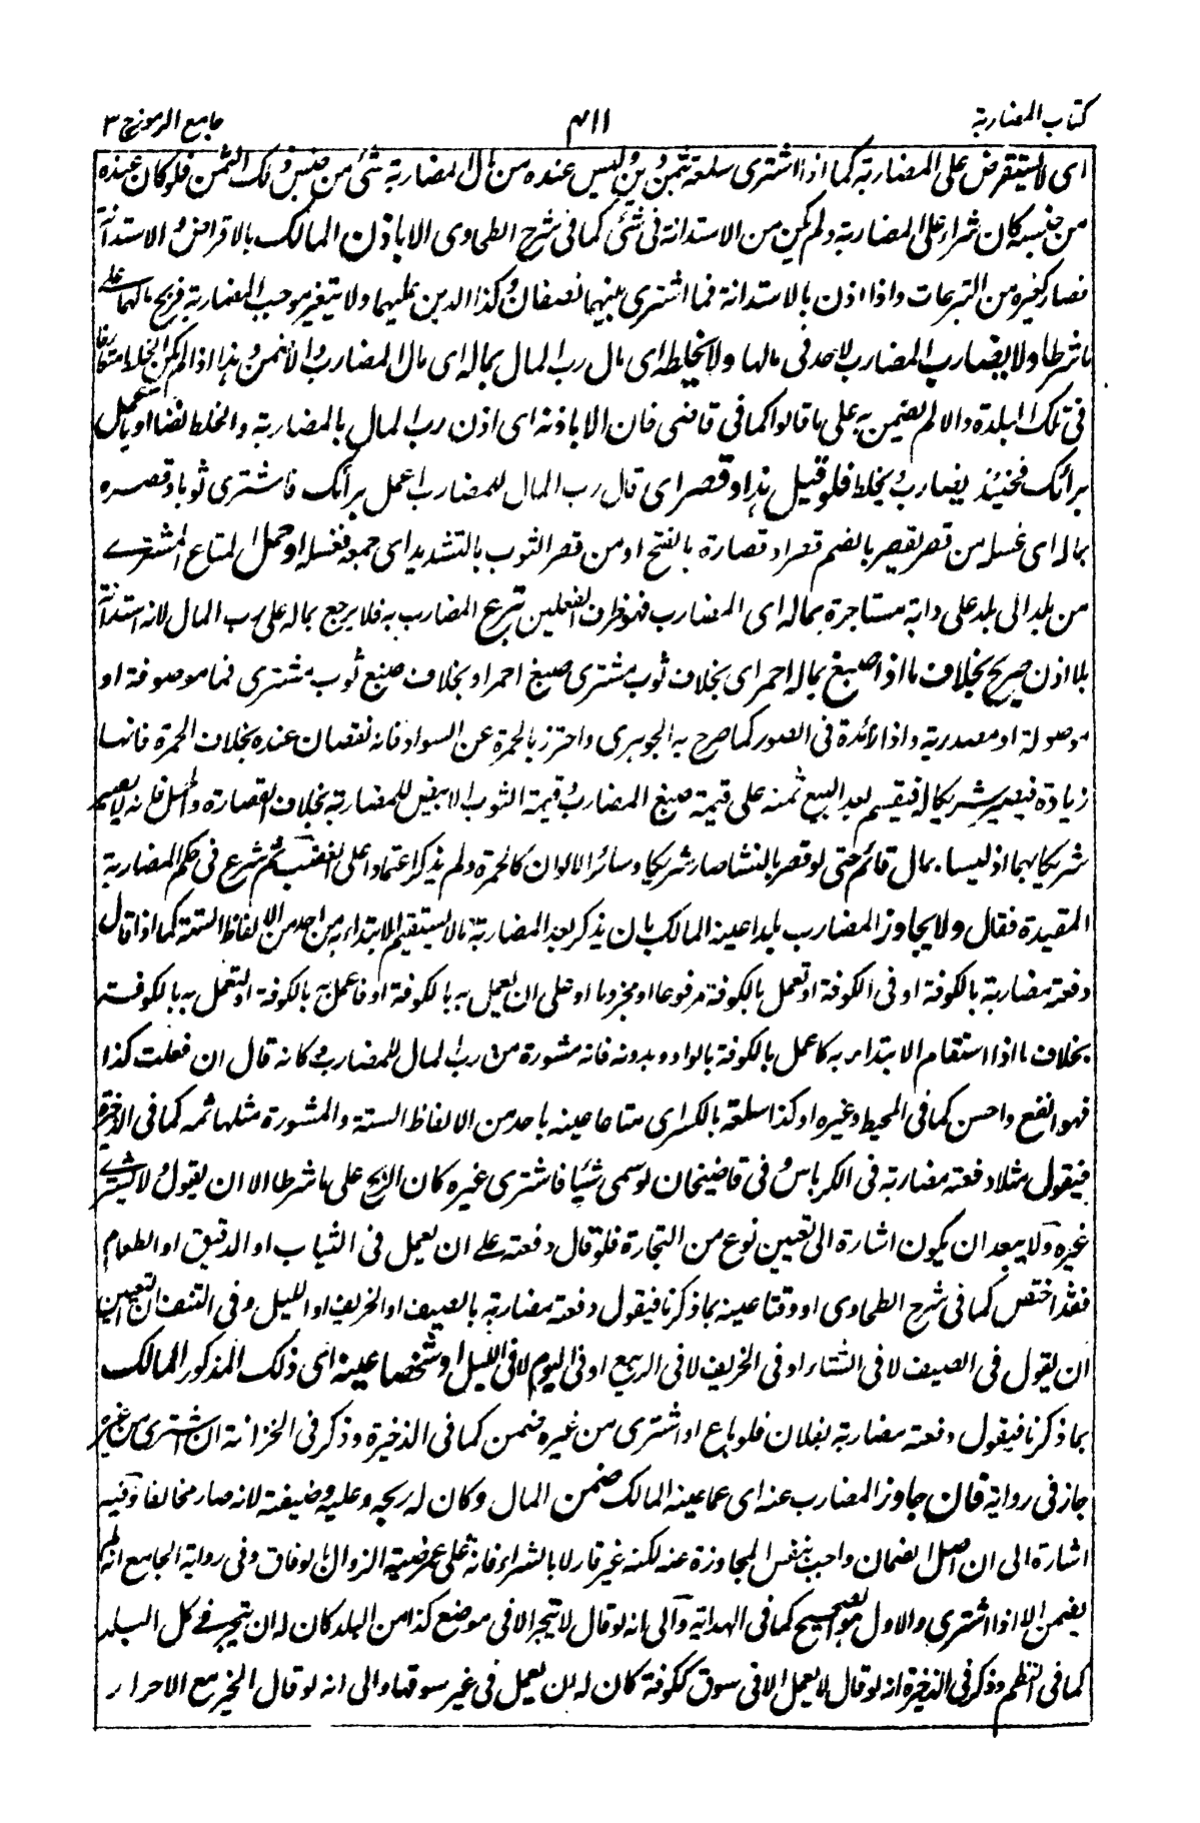 كتاب المضاربة
۴۱۱
جامع الرموز ج ۳
اى لا يستقرض على المضاربة كما اذا اشترى سلعة بثمن دين وليس عنده من مال المضاربة شئ من جنس ذلك الثمن فلو كان عنده
من جنسه كان شراء على المضاربة ولم يكن من الاستدانة فى شئ كما فى شرح الطحاوى الا باذن المالك بالاقراض والاستدانة
فصار كغيره من التبرعات واذا اذن بالاستدانة فما اشترى بينهما نصفان وكذا الدين عليهما ولا يتغير موجب المضاربة فربح مالهما على
ما شرطا ولا يضارب المضارب لاحد فى مالها ولا يخلطه اى مال رب المال بماله اى مال المضارب والا ضمن وهذا اذا لم يكن الخلط متعارفا
فى تلك البلدة والا لم يضمن به على ما قالوا كما فى قاضى خان الا باذنه اى اذن رب المال بالمضاربة والخلط نصا او باعمل
برأيك فحينئذ يضارب ويخلط فلو قيل هذا وقصر اى قال رب المال للمضارب اعمل برأيك فاشترى ثوبا وقصره
بماله اى غسله من قصر يقصر بالضم قصرا وقصارة بالفتح او من قصر الثوب بالتشديد اى جمعه فغسله او حمل المتاع المشترى
من بلد الى بلد على دابة مستاجرة بماله اى المضارب فهو ظرف الفعلين تبرع المضارب به فلا يرجع بماله على رب المال لانه استدانة
بلا اذن صريح بخلاف ما اذا صبغ بماله احمر اى بخلاف ثوب مشترى صبغ احمر او بخلاف صبغ ثوب مشترى فما موصوفة او
موصولة او مصدرية واذا زائدة فى الصور كما صرح به الجوهرى واحترز بالحمرة عن السواد فانه نقصان عنده بخلاف الحمرة فانها
زيادة فيصير شريكا له فيقسم بعد البيع ثمنه على قيمة صبغ المضارب وقيمة الثوب الابيض للمضاربة بخلاف القصارة والحمل فانه لا يصير
شريكا بهما اذ ليسا بمال قائم حتى لو قصر بالنشا صار شريكا وسائر الالوان كالحمرة ولم يذكر اعتمادا على الغصب ثم شرع فى حكم المضاربة
المقيدة فقال ولا يجاوز المضارب بلدا عينه المالك بان يذكر بعد المضاربة ما لا يستقيم الابتداء به من احد من الالفاظ الستة كما اذا قال
دفعته مضاربة بالكوفة او فى الكوفة او تعمل بالكوفة مرفوعا او مجزوما او على ان تعمل به بالكوفة او فاعمل به بالكوفة او لتعمل به بالكوفة
بخلاف ما اذا استقام الابتداء به كاعمل بالكوفة بالواو وبدونه فانه مشورة من رب المال للمضارب كانه قال ان فعلت كذا
فهو انفع واحسن كما فى المحيط وغيره او كذا سلعة بالكسر اى متاعا عينه باحد من الالفاظ الستة والمشورة مثلها ثمه كما فى الذخيرة
فيقول مثلا دفعته مضاربة فى الكرباس وفى قاضيخان لو سمى شيئا فاشترى غيره كان الربح على ما شرطا الا ان يقول ولا يشترى
غيره ولا يبعد ان يكون اشارة الى تعيين نوع من التجارة فلو قال دفعته على ان يعمل فى الثياب او الدقيق او الطعام
فقد اختص كما فى شرح الطحاوى او وقتا عينه بما ذكرنا فيقول دفعته مضاربة بالصيف او الخريف او الليل وفى النتف ان التعيين
ان يقول فى الصيف لا فى الشتاء او فى الخريف لا فى الربيع او فى اليوم لا فى الليل او شخصا عينه اى ذلك المذكور المالك
بما ذكرنا فيقول دفعته مضاربة لفلان فلو باع او اشترى من غيره ضمن كما فى الذخيرة وذكر فى الخزانة ان اشترى من غيره
جاز فى رواية فان جاوز المضارب عنه اى عما عينه المالك ضمن المال وكان له ربحه وعليه وضيعته لانه صار مخالفا وفيه
اشارة الى ان اصل الضمان واجب بنفس المجاوزة عنه لكنه غير قار الا بالشراء فانه على عرضية الزوال بالوفاق وفى رواية الجامع انه لم
يضمن الا اذا اشترى والاول هو الصحيح كما فى الهداية والى انه لو قال لا تتجر الا فى موضع كذا من البلد كان له ان يتجر فى كل البلد
كما فى النظم وذكر فى الذخيرة انه لو قال لا يعمل الا فى سوق ككوفة كان له ان يعمل فى غير سوقها والى انه لو قال اتجر مع الاحرار